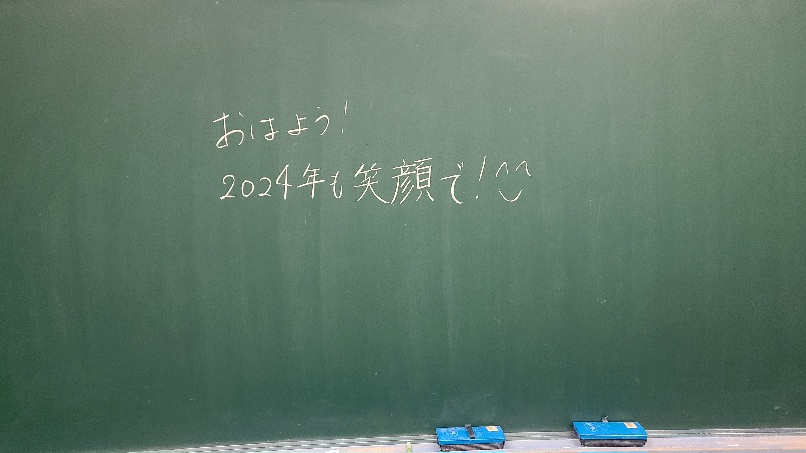 おはよう!
2024年も笑顔で!^^